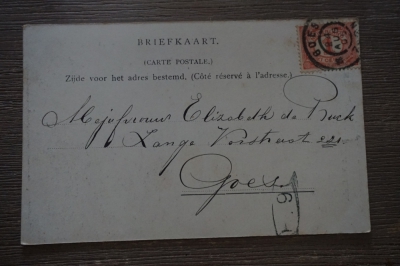 BRIEFKAART.
(CARTE POSTALE.)
Zijde voor het adres bestemd. (Côté réservé à l'adresse.)
Mejufvrouw Elizabeth de
Lange Vorststraat
Goes
GOES